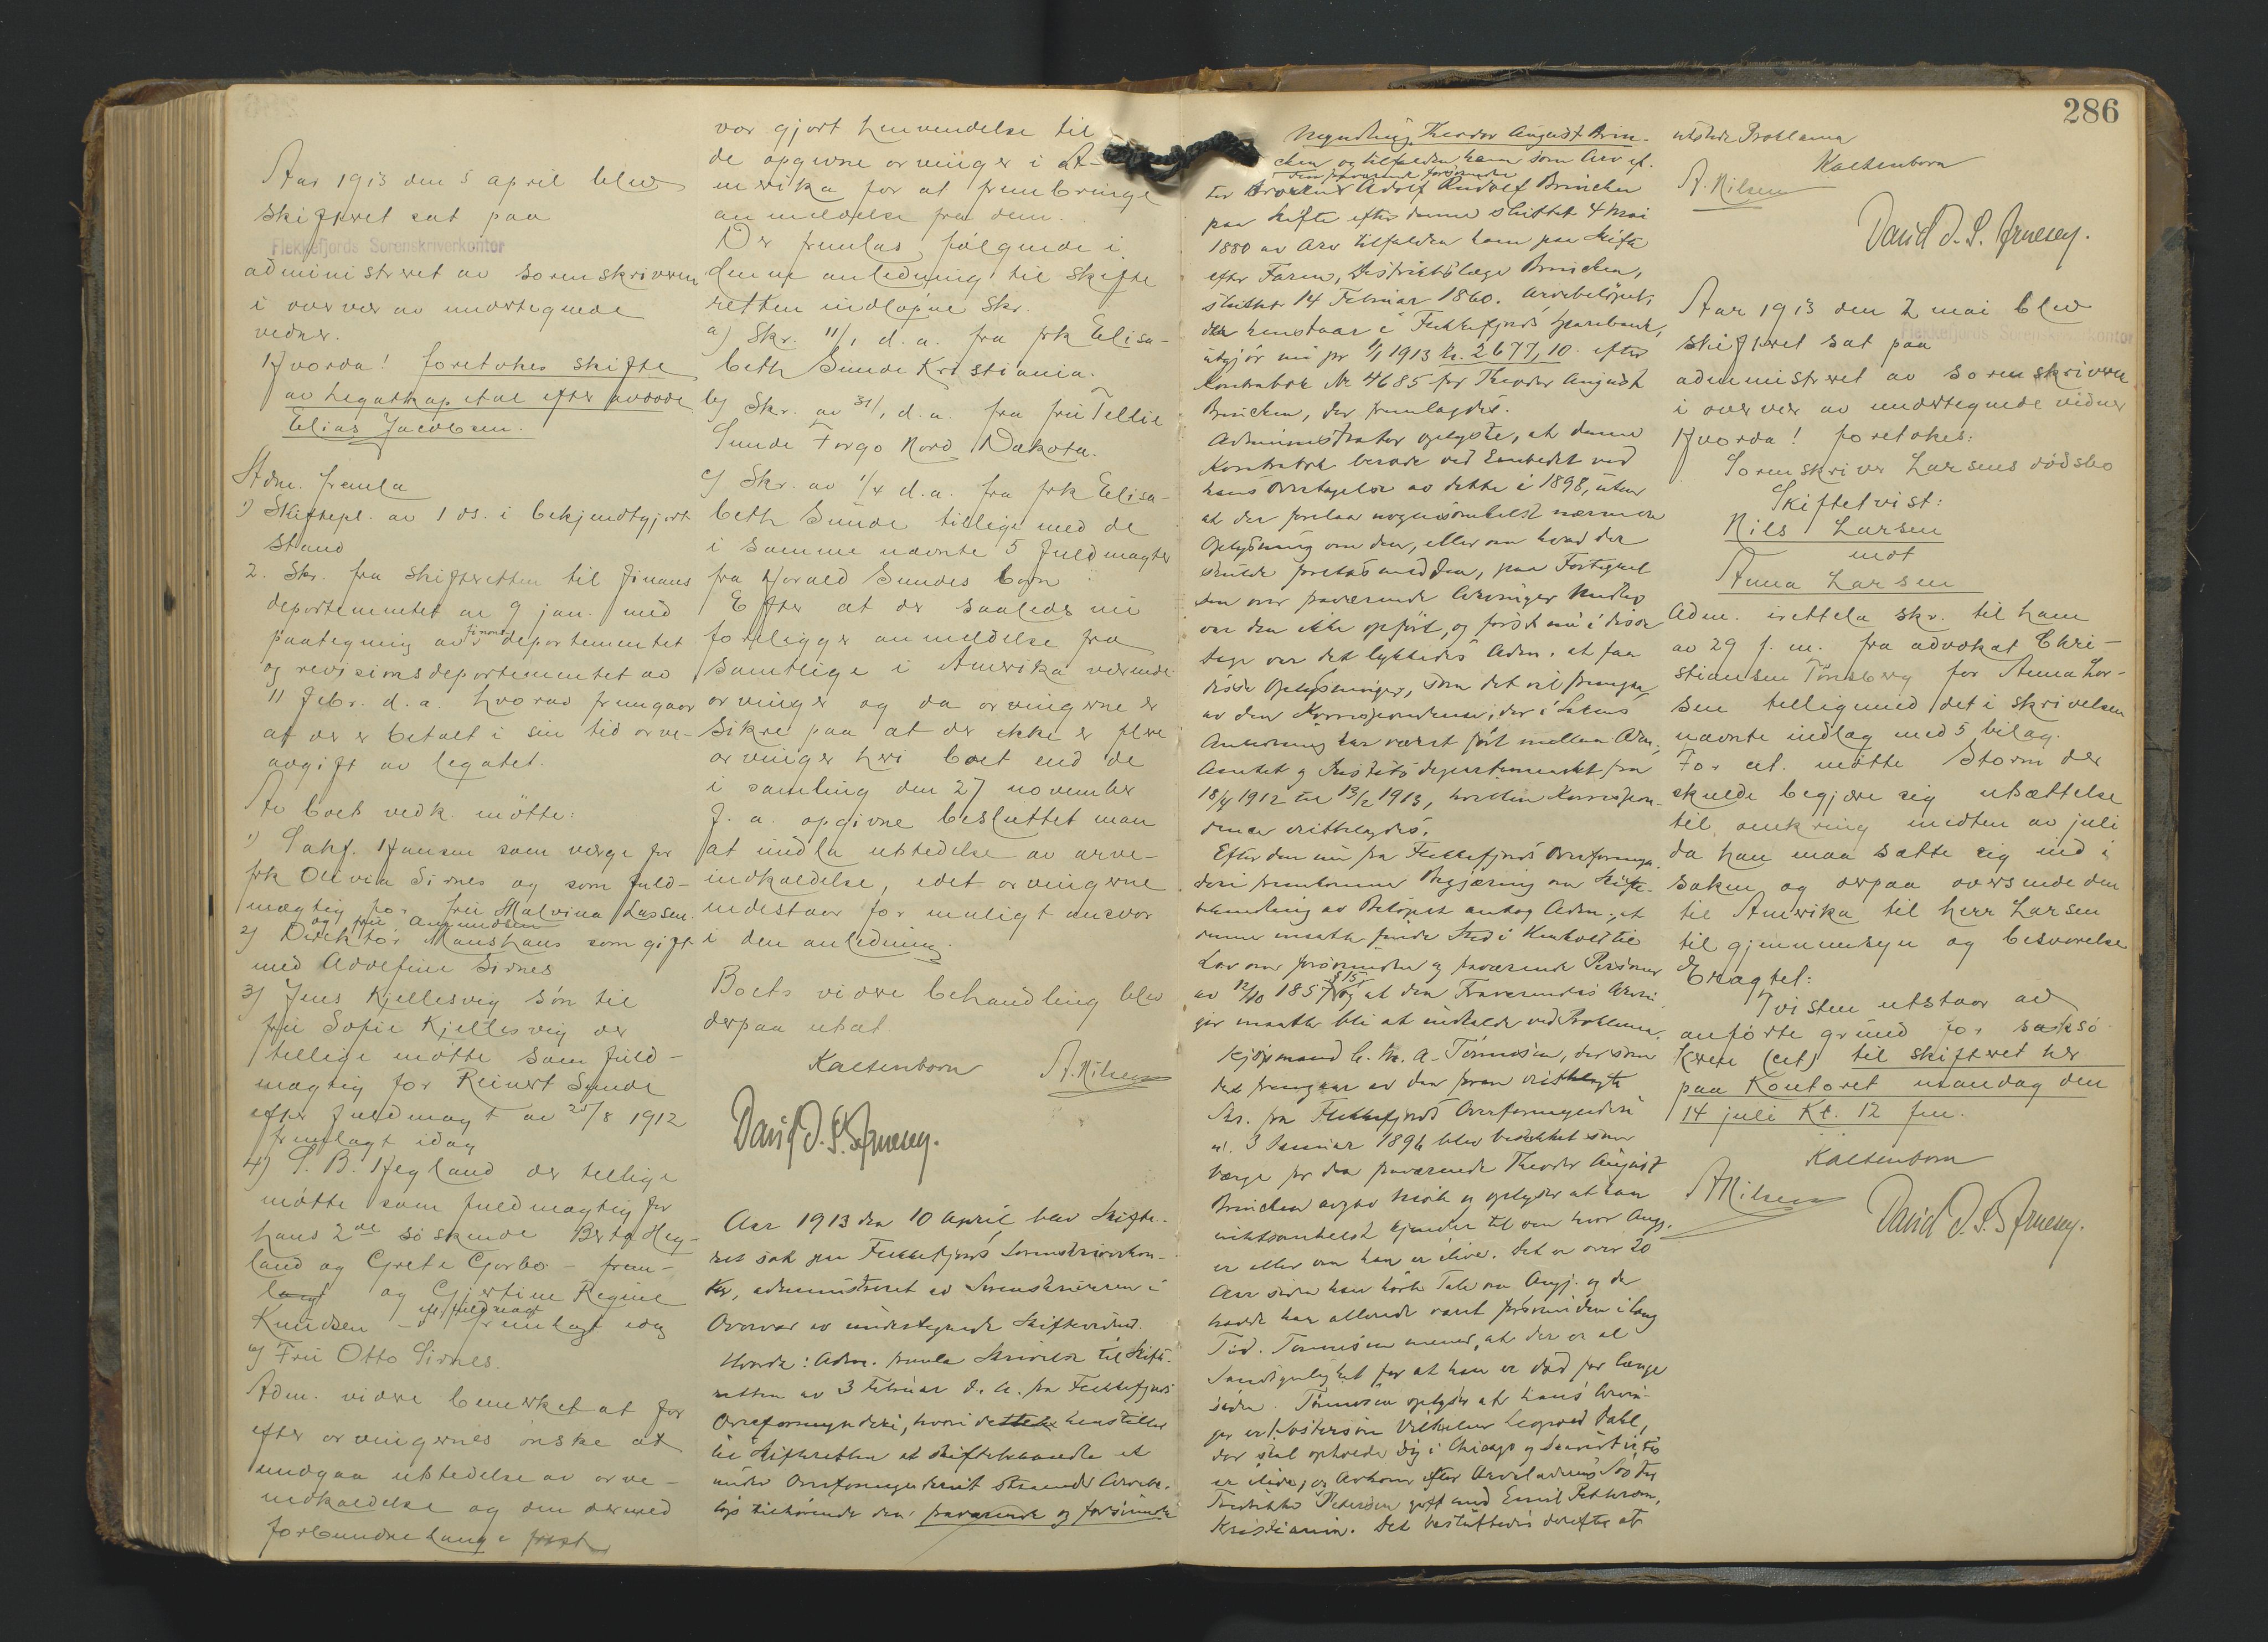 Aar 1913 den 5 april blev
skifteret sat paa
Flekkefjords Sorenskriverkontor
administreret av sorenskriveren
i overvær av undertegnede
vidner.
Hvorda! foretokes skifte
av legatkapital efter avdøde
Elias Jacobsen.
Adm. fremla
1) Skiftepl. av 1 ds. i bekjendtgjort
stand
2. Skr. fra skifteretten til finans
departementet av 9 jan. med
paategning av finansdepartementet
og revisionsdepartementet av
11 Febr. d.a. hvorav fremgaar
at der er betalt i sin tid arve-
avgift av legatet.
Av boets vedk. møtte:
1) Sakf. Hansen som værge for
frk Olivia Sirnes og som fuld-
mægtig for frü Malvina Lassen.
og frü Amundsen
2) Direktør Manshaus som gift
med Adolfine Sirnes
3) Jens Kjellesvig søn til
frü Sofie Kjellesvig der
tillige møtte som fuld-
mægtig for Reinert Sunde
efter fuldmagt av 25/8 1912
fremlagt idag
4) S. B. Hegland der tillige
møtte som fuldmægtig for
hans 2de søskende Berta Heg-
land og Grete Gjerbo - frem-
lagt og Gjertine Regine
Knudsen - efter fuldmagt fremlagt idag
Frü Otto Sirnes.
Adm. videre bemerket at for
efter arvingernes ønske at
undgaa utstedelse av arve-
indkaldelse og den dermed
forbundne lange frist
var gjort henvendelse til
de opgivne arvinger i A-
merika for at frembringe
anmeldelse fra dem.
Der fremlas følgende i
denne anledning til skifte
retten indløpne skr.
a) Skr. 11/1 d.a. fra frk Elisa-
beth Sunde Kristiania.
b) Skr. av 31/1 d.a. fra frü Tellie
Sunde Fargo Nord Dakota.
c) Skr. av 1/4 d.a. fra frk Elisa-
beth Sunde tillige med de
i samme nævnte 5 fuldmagter
fra Harald Sundes børn
Efter at der saaledes nü
foreligger anmeldelse fra
samtlige i Amerika værende
arvinger og da arvingerne er
sikre paa at der ikke er flere
arvinger her i boet end de
i samling den 27 november
f. a. opgivne besluttet man
at undla utstedelse av arve-
indkaldelse, idet arvingerne
indestaar for muligt ansvar
i den anledning.
Boets videre behandling blev
derpaa utsat.
Kaltenborn A. Nilsen
David D. S. Arnesen.
Aar 1913 den 10 April blev Skifte-
ret sat paa Flekkefjords Sorenskriverkon-
tor, administreret av Sorenskriveren i
Overvær av undertegnede Skiftevidner.
Hvorda: Adm. fremla Skrivelse til Skifte-
retten av 3 Februar d. A. fra Flekkefjords
Overformynderi, hvori dettes henstilles
til Skifteretten at skiftebehandle et
under Overformynderiet staaende Arvebe-
løp tilhørende den fraværende og forsvundne
286
Myndling, Theodor August Brin-
cken og tilfalden ham som Arv ef-
den fraværende forsvundne
ter Broderen Adolf Rudolf Brincken
paa Skifte efter denne sluttet 4 Mai
1880 av Arv tilfalden ham paa Skifte
efter Faren, Distriktslæge Brincken,
sluttet 14 Februar 1860. Arvebeløpet,
der henstaar i Flekkefjords Sparebank,
utgjør nü pr 1/1 1913 Kr. 2677,10. efter
Kontrabok No 4685 for Theodor August
Brincken, der fremlagdes.
Administrator oplyste, at denne
Kontrabok beroede ved Embedet ved
hans Overtagelse av dette i 1898, uten
at der forelaa nogensomhelst nærmere
Oplysning om den, eller om hvad der
skulde foretas med den, paa Fortegnel-
sen over fraværende Arvingers Midler
var den ikke opført, og først nü i disse
Dage var det lykkedes Adm. at faa
disse Oplysninger, som det vil fremgaa
av den Korrespondance, der i Sakens
Anledning har været ført mellem Adm,
Amtet og Justitsdepartementet fra
18/4 1912 til 13/2 1913, hvilken Korrespon-
dance irettelagdes.
Efter den nü fra Flekkefjords Overformyn-
deri fremkomne Begjæring om Skifte-
behandling av Beløpet antog Adm., at
denne maatte finde Sted i Henhold til
Lov om forsvundne og fraværende Personer
av 12/10 1857 § 15 og at den Fraværendes Arvin-
ger maatte bli at indkalde ved Proklama.
Kjøpmand C. M. A. Tønnesen, der som
det fremgaar av den foran irettelagte
Skr. fra Flekkefjords Overformynderi
av 3 Januar 1896 blev beskikket som
Værge for den fraværende Theodor August
Brincken avgav Møte og oplyste at han
intetsomhelst kjender til om hvor Aug.
er eller om han er ilive. Det er over 20
Aar siden han hørte Tale om Augj. og da
hadde han allerede været forsvunden i lang
Tid. Tønnesen mener, at der er al
Sandsynlighet for at han er død for længe
siden. Tønnesen oplyste at hans Arvin-
ger er Søstersøn Vilhelm Leopold Dahl,
der skal opholde sig i Chicago og
er ilive, og Avkom efter Arveladerens Søster
Fredrikke Petersen gift med Emil Petterson,
Kristiania. Det besluttedes derefter at
utstede Proklama
Kaltenborn
A. Nilsen
David D. S. Arnesen.
Aar 1913 den 2 mai blev
Flekkefjords Sorenskriverkontor
skifteret sat paa
administreret av sorenskriveren
i overvær av undertegnede vidner
Hvorda! foretokes:
Sorenskriver Larsens dødsbo
Skiftetvist:
Nils Larsen
mot
Anna Larsen
Adm. irettela skr. til ham
av 29 f. m. fra advokat Chri-
stiansen Tønsberg for Anna Lar-
sen tilligemed det i skrivelsen
nævnte indlæg med 5 bilag.
For cit. møtte Storm der
skulde begjære sig utsættelse
til omkring midten av juli
da han maa sætte sig ind i
saken og derpaa oversende den
til Amerika til herr Larsen
til gjennemsyn og besvarelse
Eragtet:
Tvisten utstaar av
anførte grund for saksø
keren (cit) til skifteret her
paa Kontoret mandag den
14 juli Kl. 12 fm.
Kaltenborn
A Nilsen
David D. S. Arnesen.